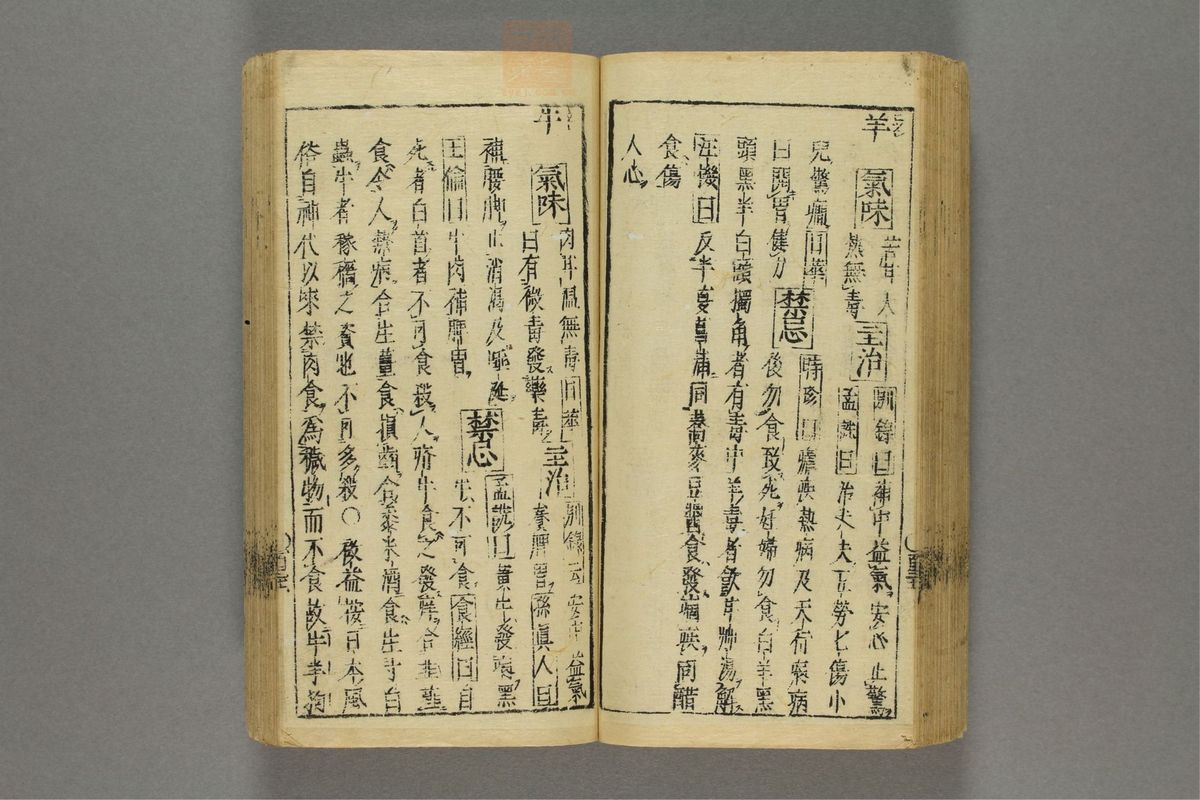 羊
氣味 苦甘大
熱無毒 主治 別錄曰補中益氣安心止驚
孟詵曰治丈夫五勞七傷小
兒驚癇日華
曰開胃健力 禁忌 時珍曰瘧疾熱病及天行病
後勿食致死妊婦勿食白羊黑
頭黑羊白頭獨角者有毒中羊毒者飲甘草湯解
汪機曰反半夏菖蒲同蕎麥豆醬食發痼疾同醋
食傷
人心
牛
氣味 肉甘溫無毒日華
曰有微毒發藥毒 主治 別錄云安中益氣
養脾胃孫真人曰
補腰脚止消渴及唾涎 禁忌 孟詵曰黃牛發病黑
牛不可食食經曰自
王倫曰牛肉補脾胃
死者白首者不可食殺人疥牛食之發痒合韭薤
食令人熱病合生薑食損齒合黍米酒食生寸白
蟲牛者稼穡之資也不可多殺〇啟益按日本風
俗自神代以來禁肉食為穢物而不食故牛羊狗